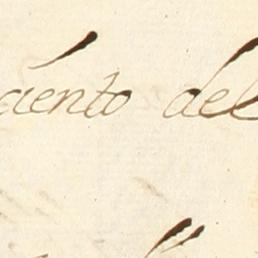 ciento del